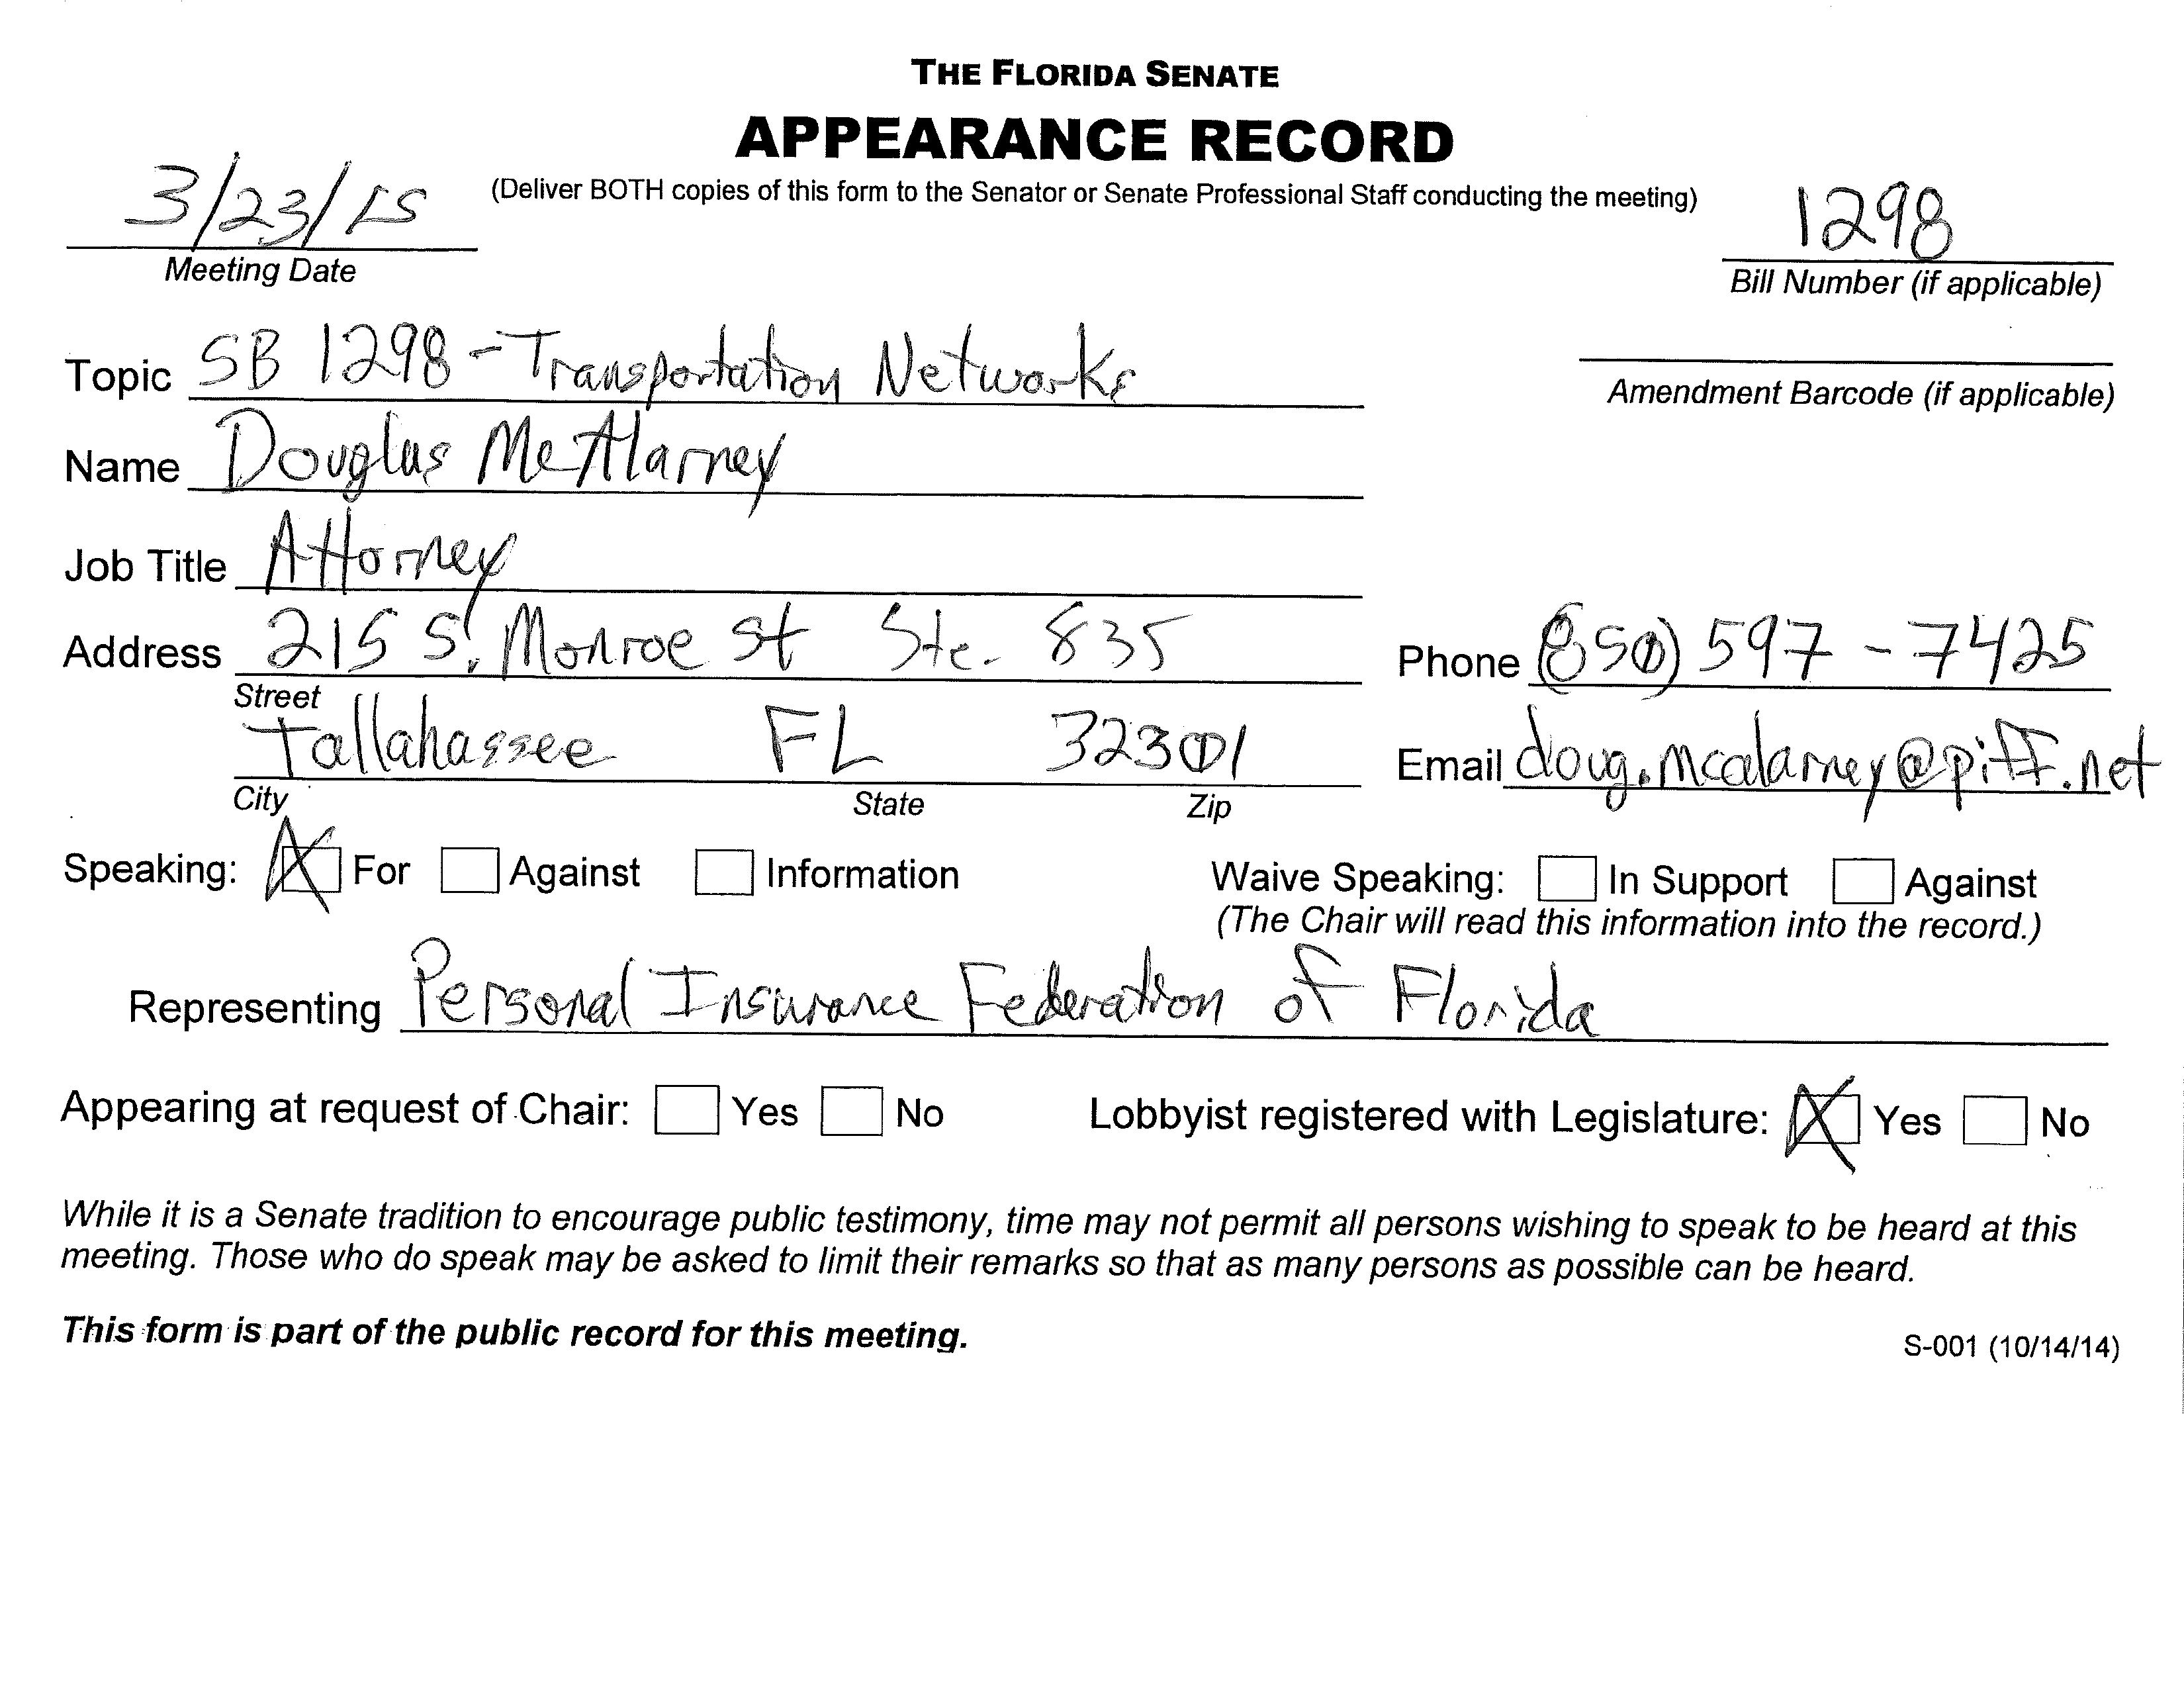 THE FLORIDA SENATE
APPEARANCE RECORD
(Deliver BOTH copies of this form to the Senator or Senate Professional Staff conducting the meeting)
3/23/15
Meeting Date
1298
Bill Number (if applicable)
Topic SB 1298 - Transportation Networks
Amendment Barcode (if applicable)
Name Douglas McAlarney
Job Title Attorney
Address 215 S. Monroe St Ste. 835
Phone (850) 597-7425
Street
Tallahassee FL 32301
Email doug.mcalarney@piff.net
City State Zip
Speaking: For Against Information
Waive Speaking: In Support Against
(The Chair will read this information into the record.)
Representing Personal Insurance Federation of Florida
Appearing at request of Chair: Yes No
Lobbyist registered with Legislature: Yes No
While it is a Senate tradition to encourage public testimony, time may not permit all persons wishing to speak to be heard at this
meeting. Those who do speak may be asked to limit their remarks so that as many persons as possible can be heard.
This form is part of the public record for this meeting.
S-001 (10/14/14)